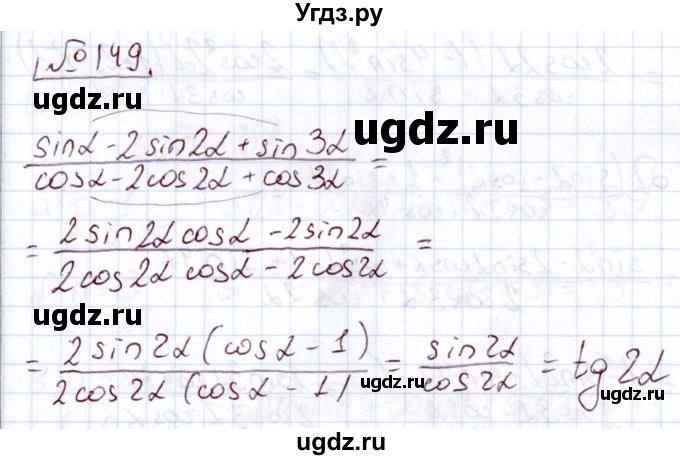 Угдз.ру
№149.
ugdz.ru
ugdz.ru
(sinα - 2sin2α + sin3α)/(cosα - 2cos2α + cos3α) =
ugdz.ru
= (2sin2α cosα - 2sin2α)/(2cos2α cosα - 2cos2α) =
ugdz.ru
ugdz.ru
= (2sin2α(cosα - 1))/(2cos2α(cosα - 1)) = sin2α/cos2α = tg2α
ugdz.ru
ugdz.ru
ugdz.ru
ugdz.ru